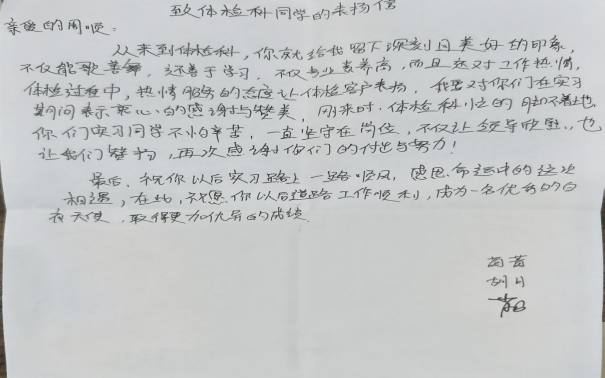 致体检科同学的表扬信
亲爱的周顺:
从来到体检科,你就给我留下深刻且美好的印象,
不仅能歌善舞,还善于学习,不仅专业素养高,而且还对工作热情,
体检过程中,热情服务的态度让体检客户表扬,我要对你们在实习
期间表示衷心的感谢与赞美,刚来时,体检科忙的脚不着地,
你们实习同学不怕辛苦,一直坚守在岗位,不仅让领导欣慰,也
让我们赞扬,再次感谢你们的付出与努力!
最后,祝你以后实习路上一路顺风,感恩命运中的这次
相遇,在此,祝愿你以后道路工作顺利,成为一名优秀的白
衣天使,取得更加优异的成绩